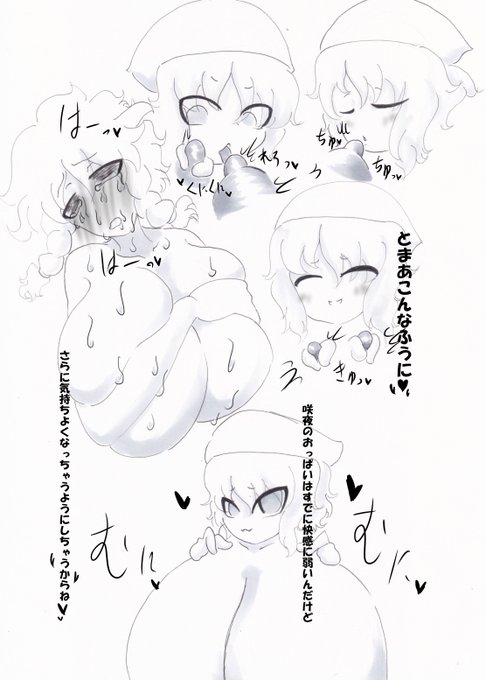 はーっ♥
れろっ♥
くにくに♥
ちゅ♥
ちゅっ♥
はーっ♥
とまあこんなふうに♥
きゅっ♥
咲夜のおっぱいはすでに快感に弱いんだけど
さらに気持ちよくなっちゃうようにしちゃうからね♥
むに♥
むに♥